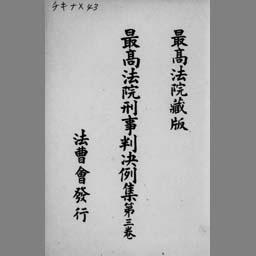 チキナX43
最高法院藏版
最高法院刑事判决例集第三卷
法曹會發行